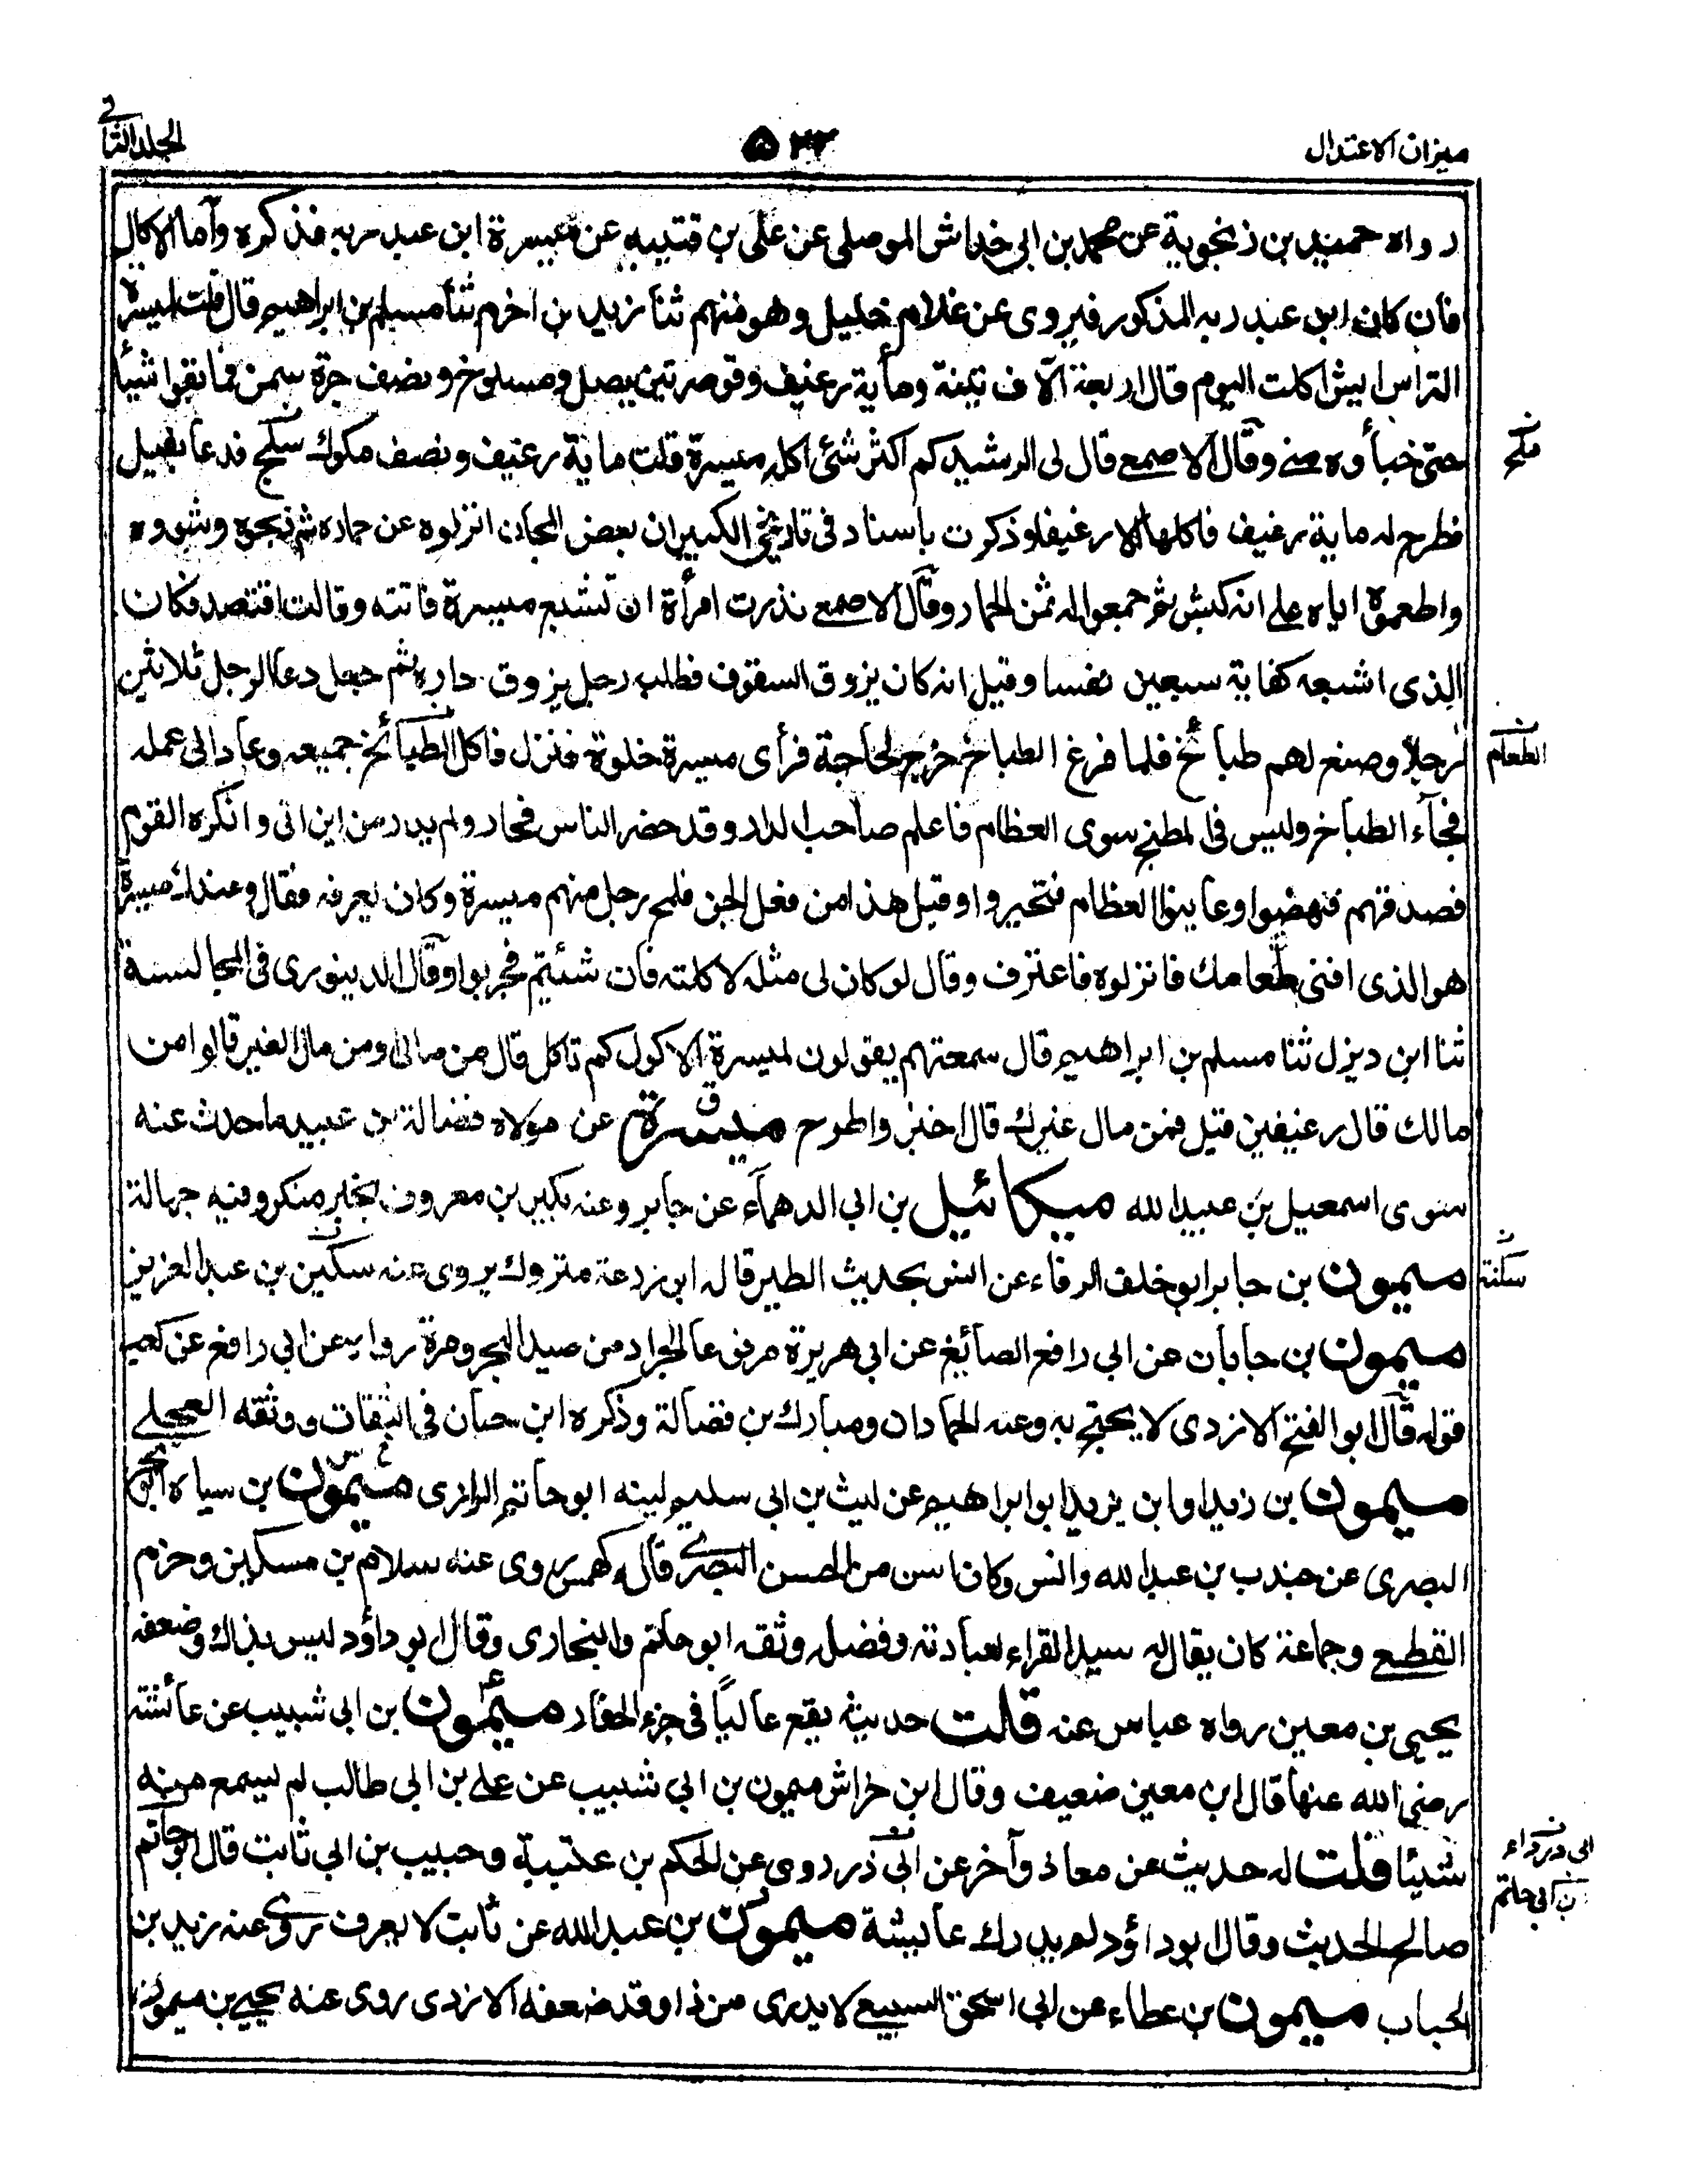 ميزان الاعتدال
٥٢٢
الجلد الثاني
رواه حميد بن زنجوية عن محمد بن ابي خداش الموصلي عن علي بن قتيبه عن ميسرة ابن عبد ربه فذكره وآما الاكال
فان كان ابن عبد ربه المذكور فيروى عن غلام خليل وهو منهم ثنا زيد بن اخزم ثنا مسلم بن ابراهيم قال قلت لميسرة
التراس ايش اكلت اليوم قال اربعة آلاف تينة ومأية رغيف وقوصرتين بصل ومسلوخ ونصف جرة سمن فما بقوا شيأ
حتى خبأوه مني وقال الاصمعي قال لي الرشيد كم اكثر شئ اكله ميسرة قلت ماية رغيف ونصف مكوك سكج فدعا بفيل
ملح
فطرح له ماية رغيف فاكلها الا رغيفا وذكرت باسناد في تاريخي الكبير ان بعض المجان انزلوه عن حماره ثم ذبحوه وشووه
واطعموه اياه على انه كبش ثم جمعوا له ثمن الحمار وقال الاصمعي نذرت امرأة ان تشبع ميسرة فاتته وقالت اقتصد فكان
الذى اشبعه كفاية سبعين نفسا وقيل انه كان يزوق السقوف فطلب رجل يزوق داره ثم جعل دعا الرجل ثلاثين
رجلا وصنع لهم طبائخ فلما فرغ الطباخ خرج لحاجة فرأى ميسرة خلوة فنزل فاكل الطبائخ جميعه وعاد الى عمله
الطعام
فجآء الطباخ وليس في المطبخ سوى العظام فاعلم صاحب الدار وقد حضر الناس فحار ولم يدر من اين اتى وانكره القوم
فصدقهم فنهضوا وعاينوا العظام فتحيروا وقيل هذا من فعل الجن فلمح رجل منهم ميسرة وكان يعرفه فقال وعندك ميسرة
هو الذى افنى طعامك فانزلوه فاعترف وقال لو كان لى مثله لاكلته فان شئتم فجربوا وقال الدينورى في المجالسة
ثنا ابن ديزل ثنا مسلم بن ابراهيم قال سمعتهم يقولون لميسرة الاكول كم تاكل قال من مالى ومن مال الغير قالوا من
مالك قال رغيفين قيل فمن مال غيرك قال اخبز واطرح ميسرة عن مولاه فضالة بن عبيد ما حدث عنه
سوى اسمعيل بن عبيد الله ميكائيل بن ابي الدهمآء عن جابر وعنه بكير بن معروف بخبر منكر وفيه جهالة
ميمون بن جابر ابو خلف الرفاء عن انس بحديث الطير قال ابو زرعة متروك يروى عنه سكين بن عبد العزيز
سكنة
ميمون بن جابان عن ابي رافع الصائغ عن ابي هريرة مرفوعا الجراد من صيد البحر ومرة رواه عن ابي رافع عن كعب
قوله قال ابو الفتح الازدى لا يحتج به وعنه الحمادان ومبارك بن فضالة وذكره ابن حبان في الثقات ووثقه العجلي
ميمون بن زيد او ابن يزيد ابو ابراهيم عن ليث بن ابي سليم لينه ابو حاتم الرازى ميمون بن سياه ابو بحر
البصرى عن جندب بن عبد الله وانس وكان اسن من الحسن البصري قاله كهمس روى عنه سلام بن مسكين وحزم
القطعي وجماعة كان يقال له سيد القراء لعبادته وفضله وثقه ابو حاتم والبخارى وقال ابو داؤد ليس بذاك وضعفه
يحيى بن معين رواه عباس عنه قلت حديثه يقع عاليًا في جزء الحفار ميمون بن ابي شبيب عن عائشة
رضي الله عنها قال ابن معين ضعيف وقال ابن خراش ميمون بن ابي شبيب عن علي بن ابي طالب لم يسمع منه
شيئا قلت له حديث عن معاذ وآخر عن ابي ذر روى عن الحكم بن عتيبة وحبيب بن ابي ثابت قال ابو حاتم
ابي درداء
بن ابي حاتم
صالح الحديث وقال ابو داؤد لم يدرك عايشة ميمون بن عبد الله عن ثابت لا يعرف روى عنه زيد بن
الحباب ميمون بن عطاء عن ابي اسحق السبيعي لا يدرى من ذا وقد ضعفه الازدى روى عنه يحيى بن ميمون